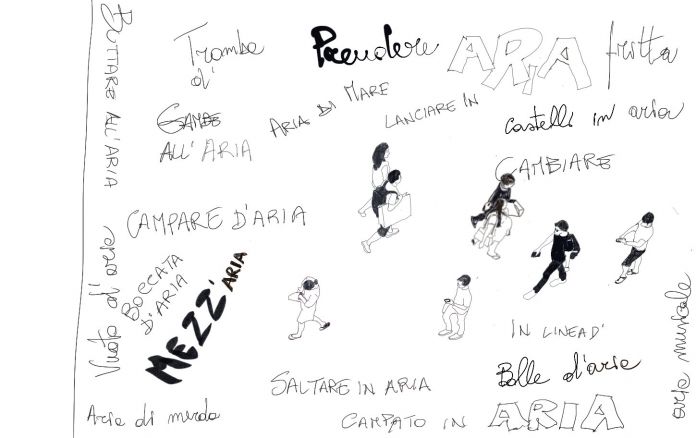 BUTTARE ALL'ARIA
Tromba
d'
Prendere
ARIA
fritta
GAMBE
ALL'ARIA
ARIA DI MARE
LANCIARE IN
castelli in aria
CAMBIARE
CAMPARE D'ARIA
Vuoto d'aria
BOCCATA
D'ARIA
MEZZ'ARIA
IN LINEA D'
Bolle d'aria
arie musicale
SALTARE IN ARIA
Aria di merda
CAMPATO IN ARIA